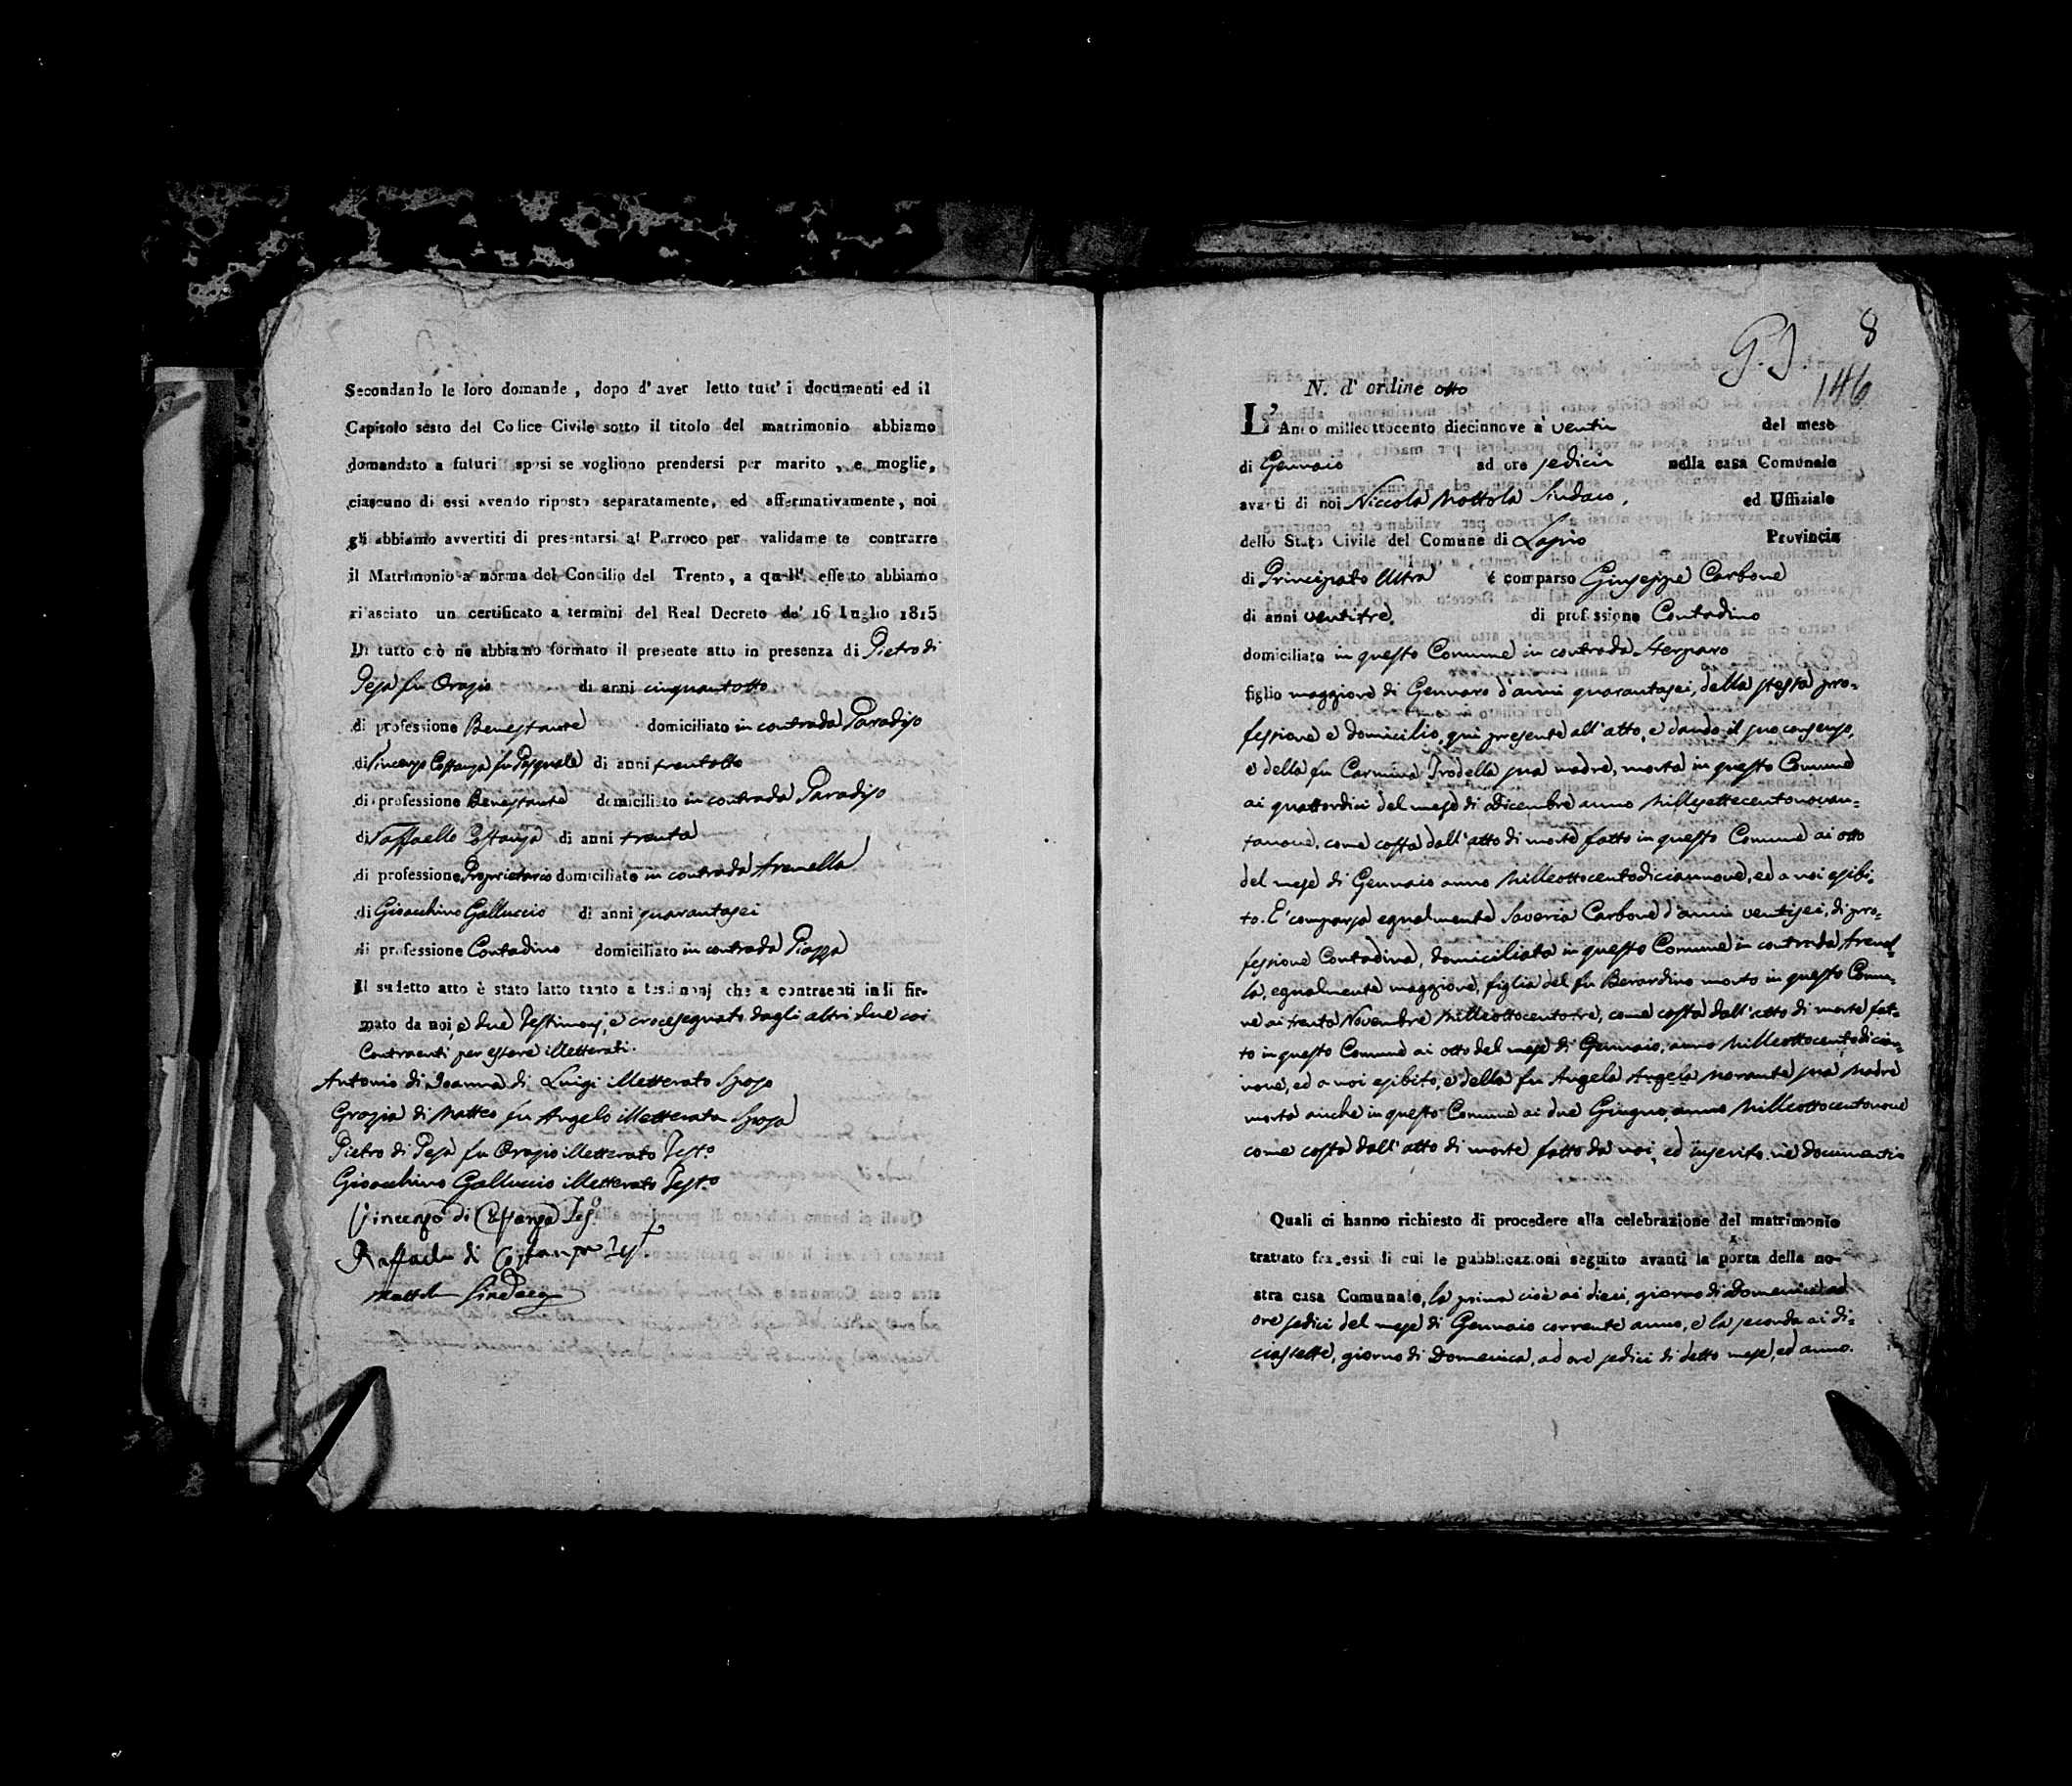 Secondando le loro domande, dopo d'aver letto tutt'i documenti ed il
Capitolo sesto del Codice Civile sotto il titolo del matrimonio abbiamo
domandato a futuri sposi se vogliono prendersi per marito, e moglie,
ciascuno di essi avendo riposto separatamente, ed affermativamente, noi
gli abbiamo avvertiti di presentarsi al Parroco per validamente contrarre
il Matrimonio a norma del Concilio del Trento, a quall' effetto abbiamo
rilasciato un certificato a termini del Real Decreto de' 16 Luglio 1815
Di tutto ciò ne abbiamo formato il presente atto in presenza di Pietro di
Pesa fu Orazio di anni cinquantotto
di professione Benestante domiciliato in contrada Paradiso
di Vincenzo Costanza fu Pasquale di anni trentotto
di professione Benestante domiciliato in contrada Paradiso
di Raffaello Costanza di anni trenta
di professione Proprietario domiciliato in contrada Arenella
di Gioacchino Galluccio di anni quarantasei
di professione Contadino domiciliato in contrada Piazza
Il sudetto atto è stato latto tanto a testimonj che a contraenti indi fir-
mato da noi, e due Testimonj, e crocesegnato dagli altri due coi
Contraenti per essere illetterati.
Antonio di Joanna di Luigi illetterato Sposo
Grazia di Matteo fu Angelo illetterata Sposa
Pietro di Pesa fu Orazio illetterato Testo
Gioacchino Galluccio illetterato Testo
Vincenzo di Costanza Tes°
Raffaele di Costanza Test
Mottola Sindaco
8
146
N. d'ordine otto
L'Anno milleottocento diecinnove a venti del mese
di Gennaio ad ore sedici nella casa Comunale
avanti di noi Niccola Mottola Sindaco, ed Uffiziale
dello Stato Civile del Comune di Lapio Provincia
di Principato Ultra é comparso Giuseppe Carbone
di anni ventitre, di professione Contadino
domiciliato in questo Comune in contrada Sterparo
figlio maggiore di Gennaro d'anni quarantasei, della stessa pro-
fessione e domicilio, qui presente all'atto, e dando il suo consenso,
e della fu Carmina Trodella sua madre, morta in questo Comune
ai quattordici del mese di dicembre anno Millesettecentonovan-
tanove, come costa dall'atto di morte fatto in questo Comune ai otto
del mese di Gennaio anno Milleottocentodiciannove, ed a noi esibi-
to. E' comparsa egualmente Saveria Carbone d'anni ventisei, di pro-
fessione Contadina, domiciliata in questo Comune in contrada Arenel-
la, egualmente maggiore, figlia del fu Berardino morto in questo Comu-
ne ai trenta Novembre Milleottocentotre, come costa dall'atto di morte fat-
to in questo Comune ai otto del mese di Gennaio, anno Milleottocentodician-
nove, ed a noi esibito, e della fu Angela Angela Morante sua Madre
morta anche in questo Comune ai due Giugno, anno Milleottocentonove
come costa dall'atto di morte fatto da noi, ed inserito ne documenti
Quali ci hanno richiesto di procedere alla celebrazione del matrimonio
trattato fra essi di cui le pubblicazioni seguito avanti la porta della no-
stra casa Comunale, la prima cioè ai dieci, giorno di Domenica ad
ore sedici del mese di Gennaio corrente anno, e la seconda ai di-
ciassette, giorno di Domenica, ad ore sedici di detto mese, ed anno.